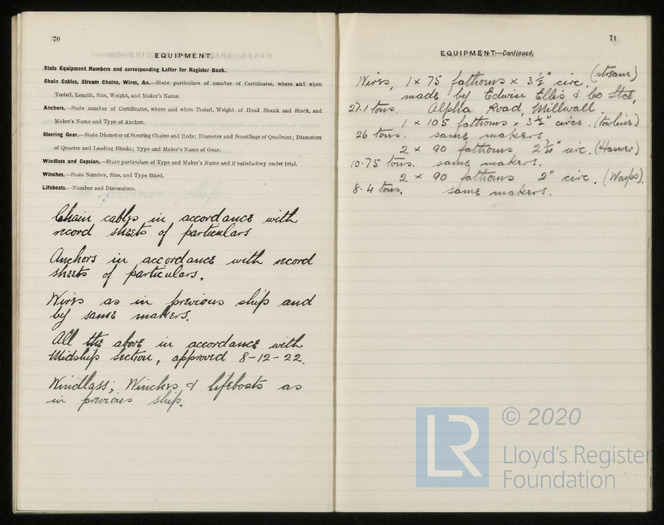 70
EQUIPMENT.
State Equipment Numbers and corresponding Letter for Register Book.
Chain Cables, Stream Chains, Wires, &c.—State particulars of number of Certificates, where and when
Tested, Length, Size, Weight, and Maker's Name.
Anchors.—State number of Certificates, where and when Tested, Weight of Head Shank and Stock, and
Maker's Name and Type of Anchor.
Steering Gear.—State Diameter of Steering Chains and Rods; Diameter and Scantlings of Quadrant; Diameters
of Quarter and Leading Blocks; Type and Maker's Name of Gear.
Windlass and Capstan.—State particulars of Type and Maker's Name and if satisfactory under trial.
Winches.—State Number, Size, and Type fitted.
Lifeboats.—Number and Dimensions.
Chain cables in accordance with
record sheets of particulars
Anchors in accordance with record
sheets of particulars.
Wires as in previous ship and
by same makers.
All the above in accordance with
Midship section, approved 8-12-22.
Windlass, Winches & lifeboats as
in previous ship.
71
EQUIPMENT—Continued.
Wires, 1 x 75 fathoms x 3½" circ. (stream)
made by Edwin Ellis & Co Ltd,
27.1 tons. Alpha Road, Millwall.
1 x 105 fathoms x 3½" circs. (towline)
26 tons. same makers.
2 x 90 fathoms 2¼" circ. (Hawser)
10.75 tons. same makers.
2 x 90 fathoms 2" circ. (Warps).
8.4 tons. same makers.
LR
© 2020
Lloyd's Register
Foundation